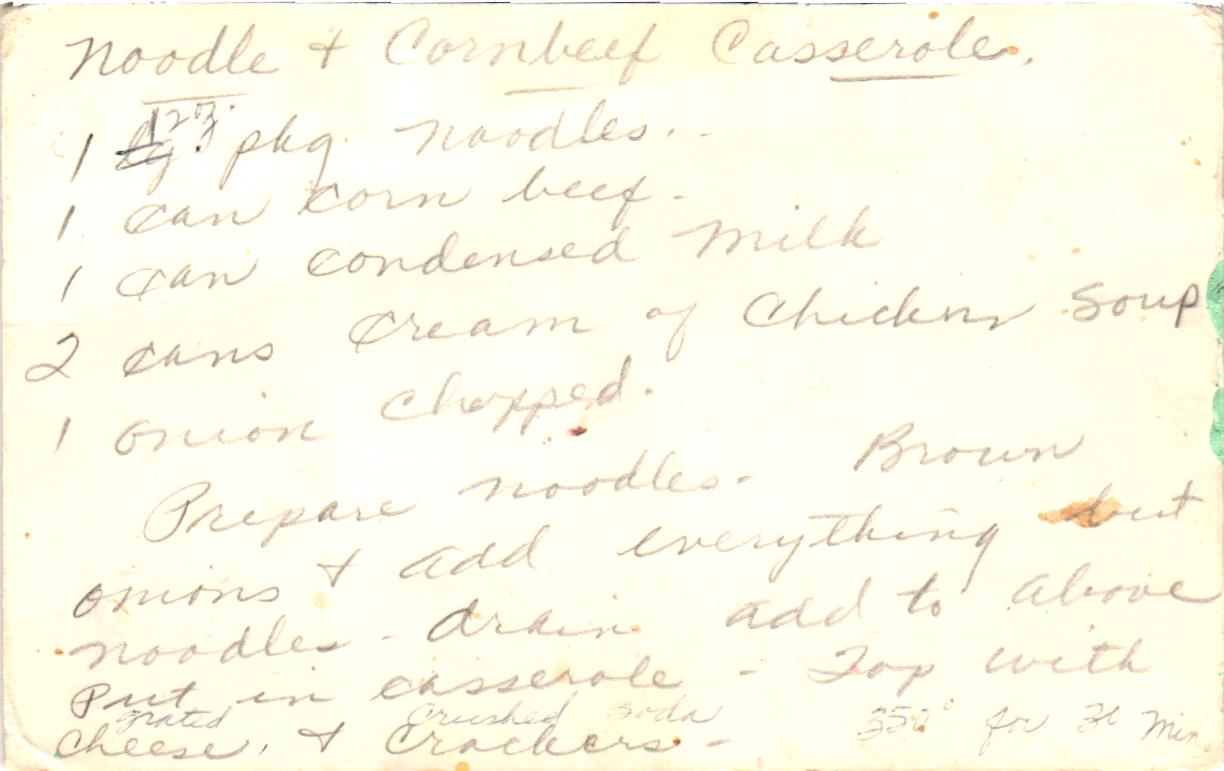 Noodle + Cornbeef Casserole.
1 12 oz. pkg. noodles..
1 can corn beef.
1 can condensed milk
2 cans cream of chicken soup
1 onion chopped.
Prepare noodles - Brown
onions + add everything but
noodles - drain add to above
Put in casserole - Top with
grated crushed soda
cheese, + crackers - 350° for 30 Min.